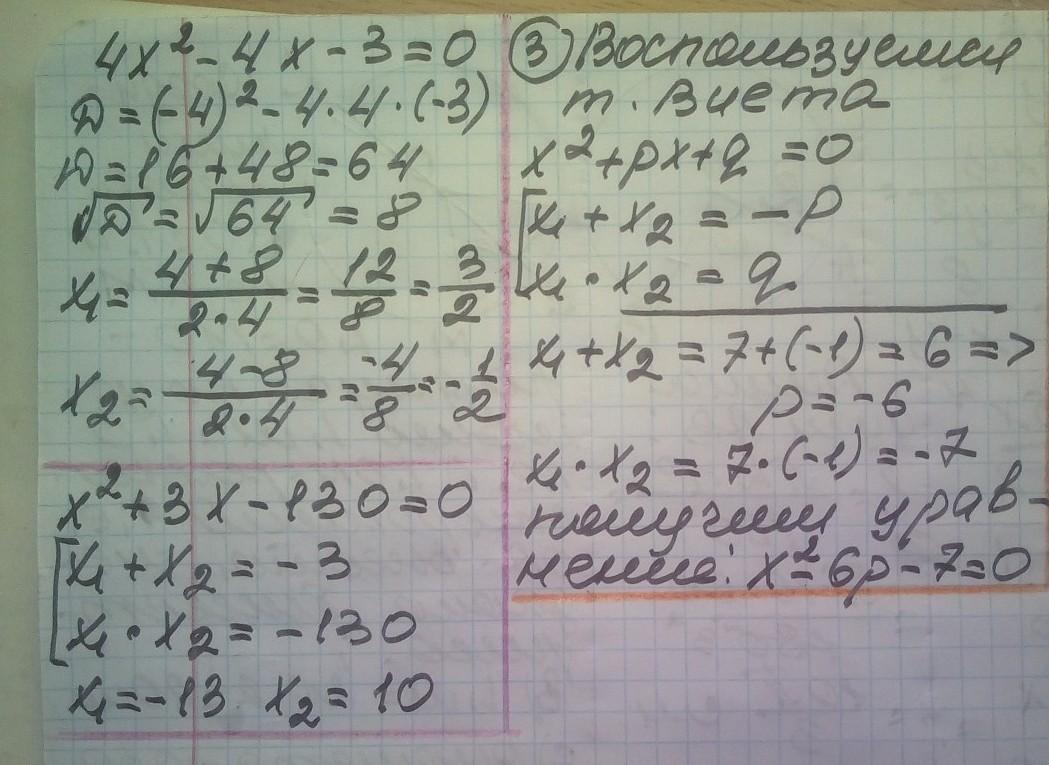 4x² - 4x - 3 = 0
D = (-4)² - 4·4·(-3)
D = 16 + 48 = 64
√D = √64 = 8
x₁ = (4+8)/(2·4) = 12/8 = 3/2
x₂ = (4-8)/(2·4) = -4/8 = -1/2
x² + 3x - 130 = 0
[x₁ + x₂ = -3
[x₁ · x₂ = -130
x₁ = -13 x₂ = 10
③ Воспользуемся
т. Виета
x² + px + q = 0
[x₁ + x₂ = -p
[x₁ · x₂ = q
x₁ + x₂ = 7 + (-1) = 6 =>
p = -6
x₁ · x₂ = 7·(-1) = -7
получим урав-
нение: x² - 6p - 7 = 0